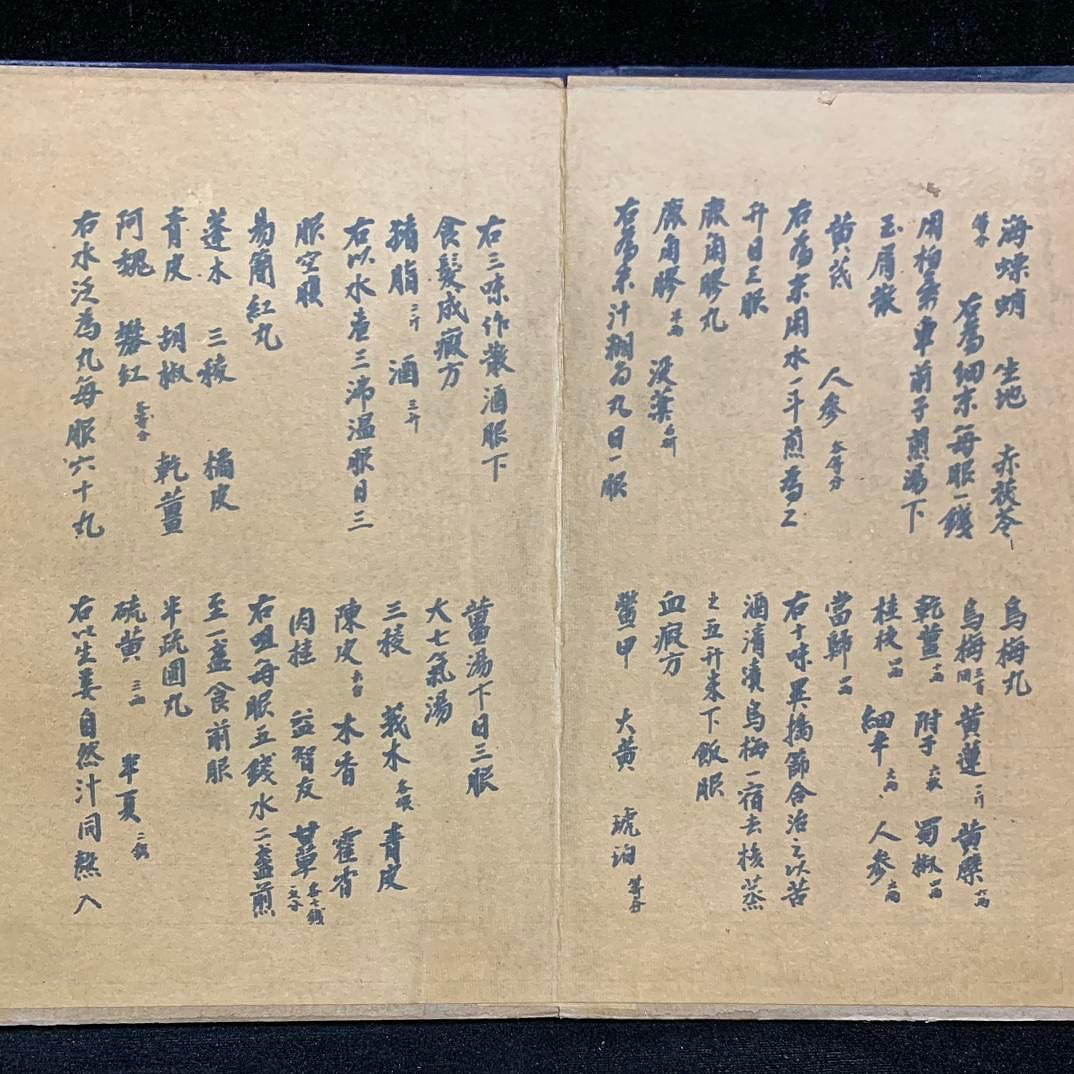 海螵蛸 生地 赤茯苓
等分 右為細末每服一錢
用柏葉車前子煎湯下
玉屑散
黃芪 人參 各等分
右為末用水一斗煎為二
升日三服
鹿角膠丸
鹿角膠 半兩 沒藥
右為末汁糊為丸日一服
烏梅丸
烏梅 三百個 黃蓮 一斤 黃蘗 六兩
乾薑 十兩 附子 六枚 蜀椒 四兩
桂枝 四兩 細辛 六兩 人參 六兩
當歸 四兩
右十味異擣篩合治之以苦
酒漬漬烏梅一宿去核蒸
之五升米下飯服
血瘕方
鱉甲 大黃 琥珀 等分
右三味作散酒服下
食髮成瘕方
猪脂 二斤 酒 三升
右以水煮三沸溫服日三
服空腹
易簡紅丸
蓬朮 三稜 橘皮
青皮 胡椒 乾薑
阿魏 礬紅 各等分
右水泛為丸每服六十丸
薑湯下日三服
大七氣湯
三稜 莪朮 青皮
陳皮 木香 霍香
肉桂 益智 甘草
右咀每服五錢水二盞煎
至一盞食前服
半疏圓丸
硫黃 三兩 半夏
右以生姜自然汁同熬入